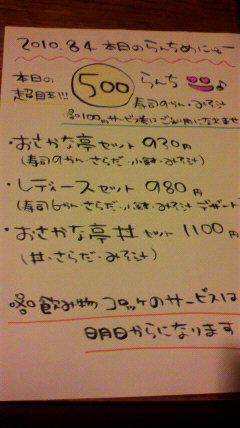 2010.8.4 本日のらんちめにゅー
本日の
超目玉!!!
500
らんち
寿司9かん・みそ汁
※100円サービス券はご利用になれません
・おさかな亭セット 930円
(寿司9かん・さらだ・小鉢・みそ汁)
・レディースセット 980円
(寿司6かん・さらだ・小鉢・みそ汁 デザート)
・おさかな亭丼セット 1100円
(丼・さらだ・みそ汁)
※飲み物 コロッケのサービスは
明日からになります